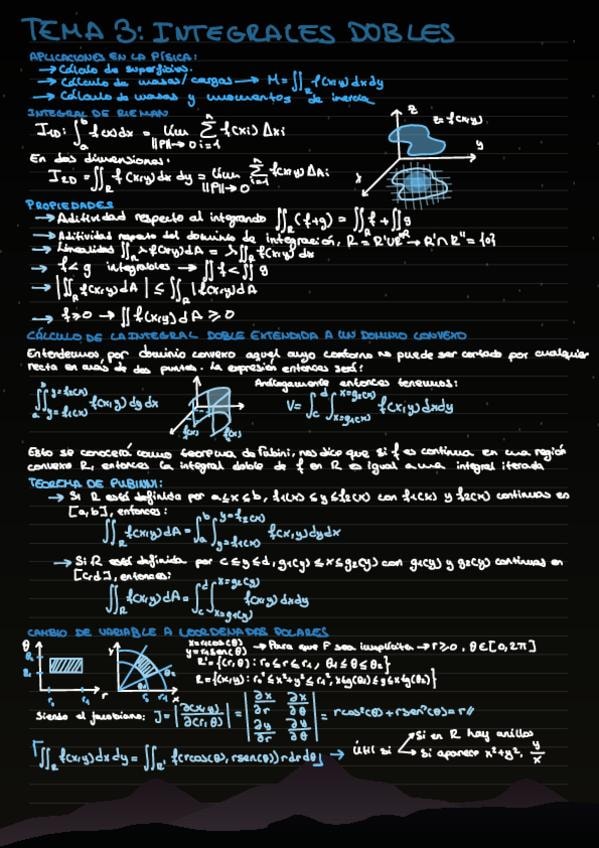 TEMA 3: INTEGRALES DOBLES
APLICACIONES EN LA FÍSICA:
→ Cálculo de superficies.
→ Cálculo de masas/cargas → M = ∬_R f(x,y) dx dy
→ Cálculo de masas y momentos de inercia
INTEGRAL DE RIEMAN
I_1D: ∫_a^b f(x) dx = lim_{||P||→0} Σ_{i=1}^n f(xi) Δxi
z = f(x,y)
z
y
x
En dos dimensiones:
I_2D = ∬_R f(x,y) dx dy = lim_{||P||→0} Σ_{i=1}^n f(x,y) ΔAi
PROPIEDADES
→ Aditividad respecto al integrando ∬_R (f+g) = ∬_R f + ∬_R g
→ Aditividad respecto del dominio de integración, R = R'UR'' → R'∩R'' = {∅}
→ Linealidad ∬_R λf(x,y) dA = λ∬_R f(x,y) dx
→ f < g integrables → ∬ f < ∬ g
→ |∬_R f(x,y) dA| ≤ ∬_R |f(x,y)| dA
→ f ≥ 0 → ∬ f(x,y) dA ≥ 0
CÁLCULO DE LA INTEGRAL DOBLE EXTENDIDA A UN DOMINIO CONVEXO
Entendemos por dominio convexo aquel cuyo contorno no puede ser cortado por cualquier
recta en más de dos puntos. La expresión entonces será:
∫_a^b ∫_{y=f1(x)}^{y=f2(x)} f(x,y) dy dx
Análogamente entonces tenemos:
V = ∫_c^d ∫_{x=g1(x)}^{x=g2(x)} f(x,y) dx dy
Esto se conocerá como teorema de Fubini, nos dice que si f es continua en una región
convexa R, entonces la integral doble de f en R es igual a una integral iterada
TEOREMA DE FUBINNI:
→ Si R está definida por a ≤ x ≤ b, f1(x) ≤ y ≤ f2(x) con f1(x) y f2(x) continuas en
[a,b], entonces:
∬_R f(x,y) dA = ∫_a^b ∫_{y=f1(x)}^{y=f2(x)} f(x,y) dy dx
→ Si R está definida por c ≤ y ≤ d, g1(y) ≤ x ≤ g2(y) con g1(y) y g2(y) continuas en
[c,d], entonces:
∬_R f(x,y) dA = ∫_c^d ∫_{x=g1(y)}^{x=g2(y)} f(x,y) dx dy
CAMBIO DE VARIABLE A COORDENADAS POLARES
x = r cos(θ)
y = r sen(θ) → Para que F sea implícita → r ≥ 0, θ ∈ [0, 2π]
R' = {(r,θ): r0 ≤ r ≤ r1, θ1 ≤ θ ≤ θ2}
R = {(x,y): r0² ≤ x²+y² ≤ r1², x tg(θ1) ≤ y ≤ x tg(θ2)}
Siendo el jacobiano: J = |∂(x,y)/∂(r,θ)| = |∂x/∂r ∂x/∂θ; ∂y/∂r ∂y/∂θ| = r cos²(θ) + r sen²(θ) = r //
∬_R f(x,y) dx dy = ∬_R' f(r cos(θ), r sen(θ)) r dr dθ → Útil si
→ Si en R hay anillos
→ Si aparece x²+y², y/x